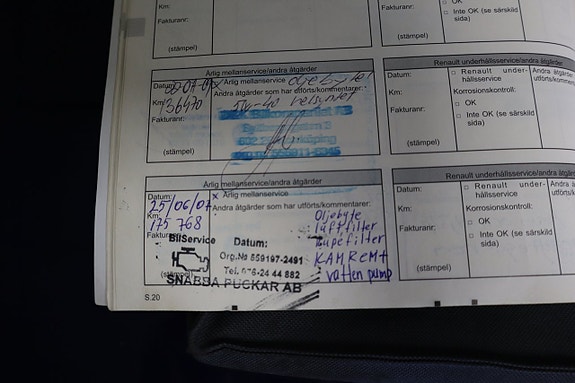 Km:
Fakturanr:
(stämpel)
Fakturanr:
□ OK
□ Inte OK (se särskild sida)
Årlig mellanservice/andra åtgärder
Datum:
Årlig mellanservice
oljebyte
Km:
136470
Andra åtgärder som har utförts/kommentarer:
5w-40
Fakturanr:
(stämpel)
Renault underhållsservice/andra åtgärder
Datum:
□ Renault under-
hållsservice
Andra åtgä
utförts/ko
Km:
Korrosionskontroll:
Fakturanr:
□ OK
□ Inte OK (se särskild
sida)
(stämpel)
Årlig mellanservice/andra åtgärder
Datum:
x Årlig mellanservice
25/06/07
Andra åtgärder som har utförts/kommentarer:
Km:
175 768
Oljebyte
luftfilter
kupefilter
KAMREMt
vatten pump
BilService
Datum:
Org.No 659197-2491
Tel. 076-24 44 882
SNABBA PUCKAR AB
Renault underhållsservice/andra åtgärder
Datum:
□ Renault under-
hållsservice
Km:
Korrosionskontroll:
Fakturanr:
□ OK
□ Inte OK (se särskild
sida)
(stämpel)
S.20